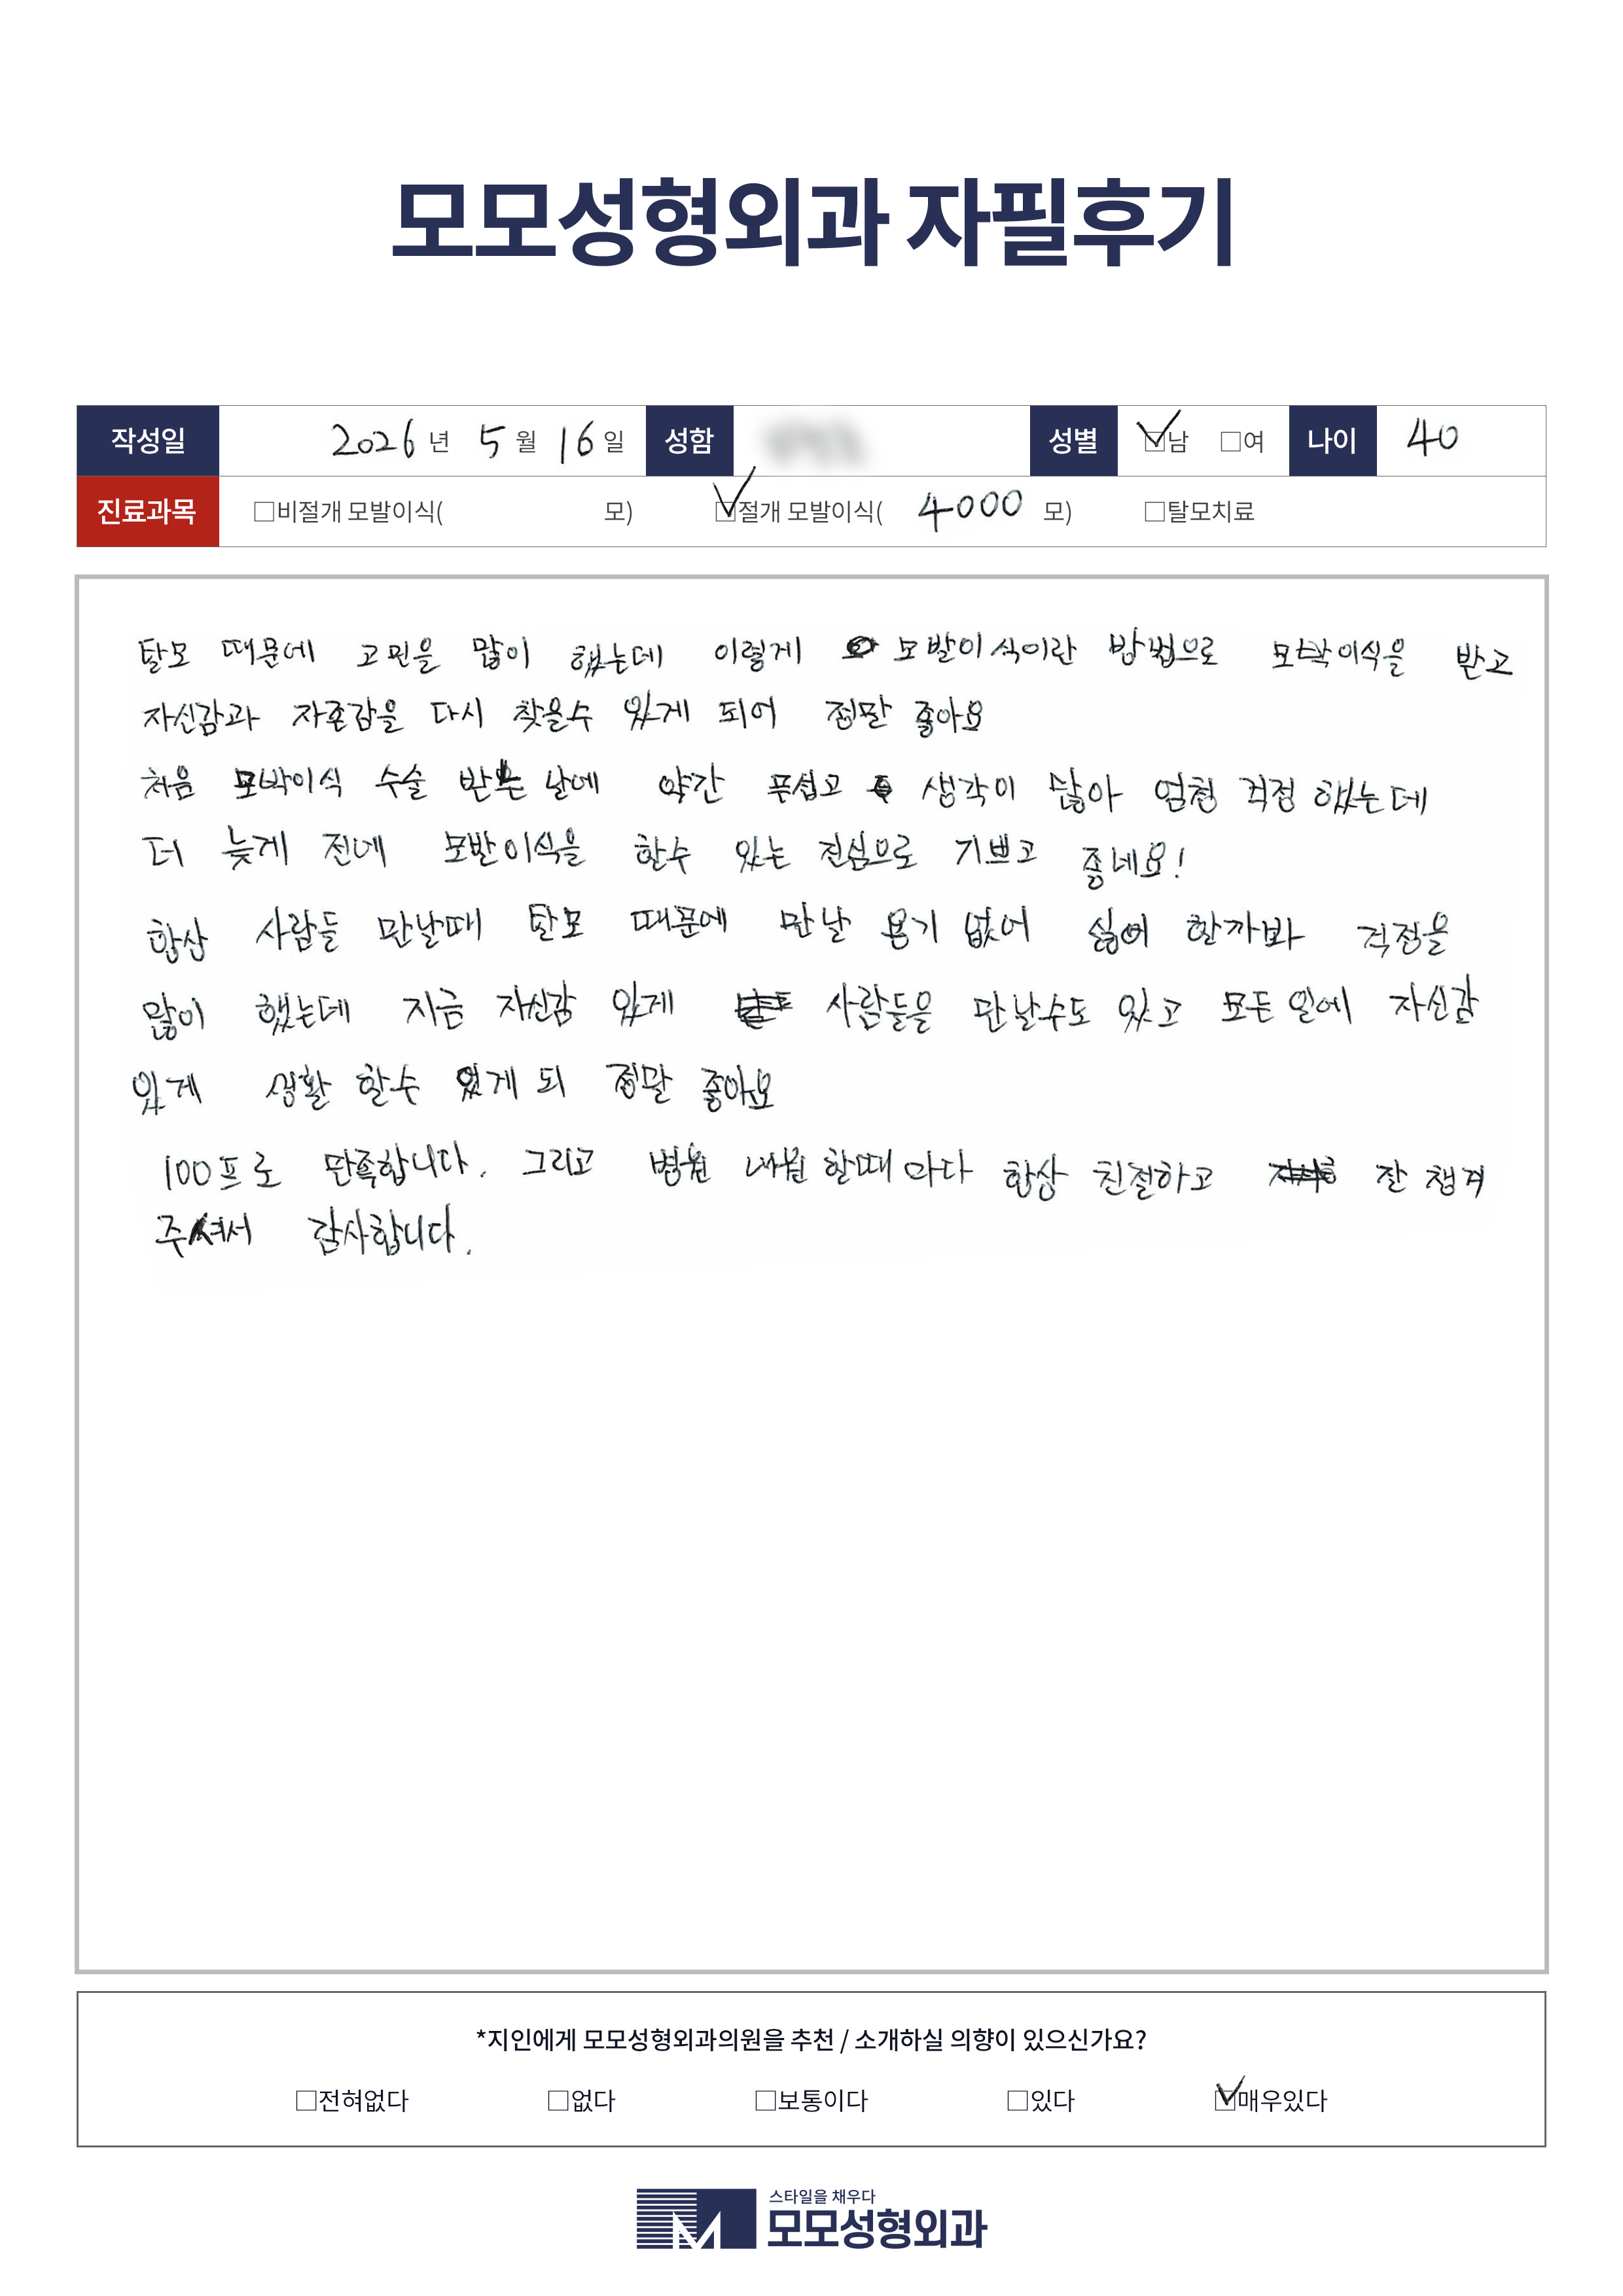 모모성형외과 자필후기
작성일 2026 년 5 월 16 일 성함 성별 ☑남 □여 나이 40
진료과목 □비절개 모발이식( 모) ☑절개 모발이식( 4000 모) □탈모치료
탈모 때문에 고민을 많이 했는데 이렇게 모발이식이란 방법으로 모발이식을 받고
자신감과 자존감을 다시 찾을수 있게 되어 정말 좋아요
처음 모발이식 수술 받는 날에 약간 무섭고 생각이 많아 엄청 걱정 했는데
더 늦게 전에 모발이식을 한수 있는 진심으로 기쁘고 좋네요!
항상 사람들 만날때 탈모 때문에 만날 용기 없어 싫어 할까봐 걱정을
많이 했는데 지금 자신감 있게 사람들을 만날수도 있고 모든 일에 자신감
있게 생활 할수 있게 되 정말 좋아요
100프로 만족합니다. 그리고 병원 내원 할때 마다 항상 친절하고 잘 챙겨
주셔서 감사합니다.
*지인에게 모모성형외과의원을 추천 / 소개하실 의향이 있으신가요?
□전혀없다 □없다 □보통이다 □있다 ☑매우있다
스타일을 채우다
모모성형외과